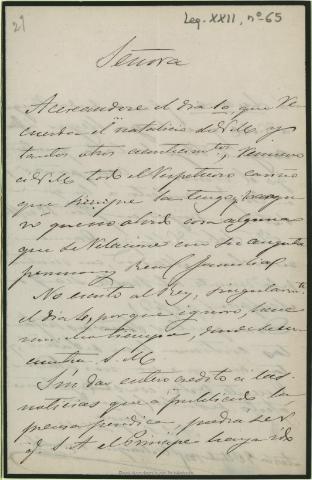 21
Leg. XXII, nº 65
Señora
Acercandose el dia 10, que re
cuerda el natalicio de V.M. y
tantos otros acontecim.tos, renuevo
á V.M. todo el respetuoso cariño
que siempre la tengo, y
no olvido cosa alguna
que se relacione con su augusta
persona y Real familia
No escribo al Rey, singularm.te
el dia 10, porque ignoro, hace
mucho tiempo, donde se en
cuentra S.M.
Sin dar entero credito a las
noticias que ha publicado la
prensa periodica, podria ser
q. S.A. el Principe haya ido